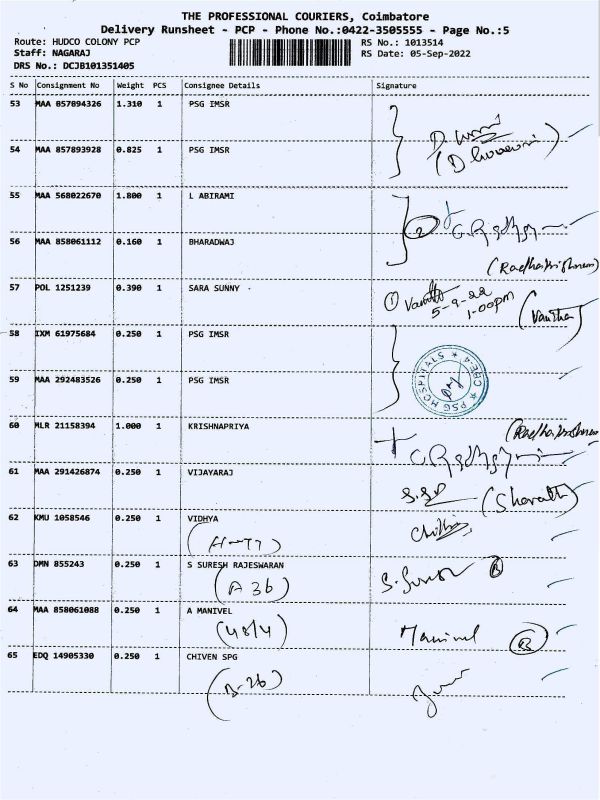 THE PROFESSIONAL COURIERS, Coimbatore
Delivery Runsheet - PCP - Phone No.:0422-3505555 - Page No.:5
Route: HUDCO COLONY PCP
RS No.: 1013514
Staff: NAGARAJ
RS Date: 05-Sep-2022
DRS No.: DCJB101351405
S No Consignment No Weight PCS Consignee Details Signature
53 MAA 857894326 1.310 1 PSG IMSR
54 MAA 857893928 0.825 1 PSG IMSR
55 MAA 568022670 1.800 1 L ABIRAMI
56 MAA 858061112 0.160 1 BHARADWAJ
(Radhakrishnan)
57 POL 1251239 0.390 1 SARA SUNNY
5-9-22
1.00pm
(Vanitha)
58 IXM 61975684 0.250 1 PSG IMSR
59 MAA 292483526 0.250 1 PSG IMSR
PSG HOSPITALS
60 MLR 21158394 1.000 1 KRISHNAPRIYA
(Radhakrishnan)
61 MAA 291426874 0.250 1 VIJAYARAJ
(Sharath)
62 KMU 1058546 0.250 1 VIDHYA
63 DMN 855243 0.250 1 S SURESH RAJESWARAN
(A 36)
64 MAA 858061088 0.250 1 A MANIVEL
(48/4)
Manivel
65 EDQ 14905330 0.250 1 CHIVEN SPG
(B-26)